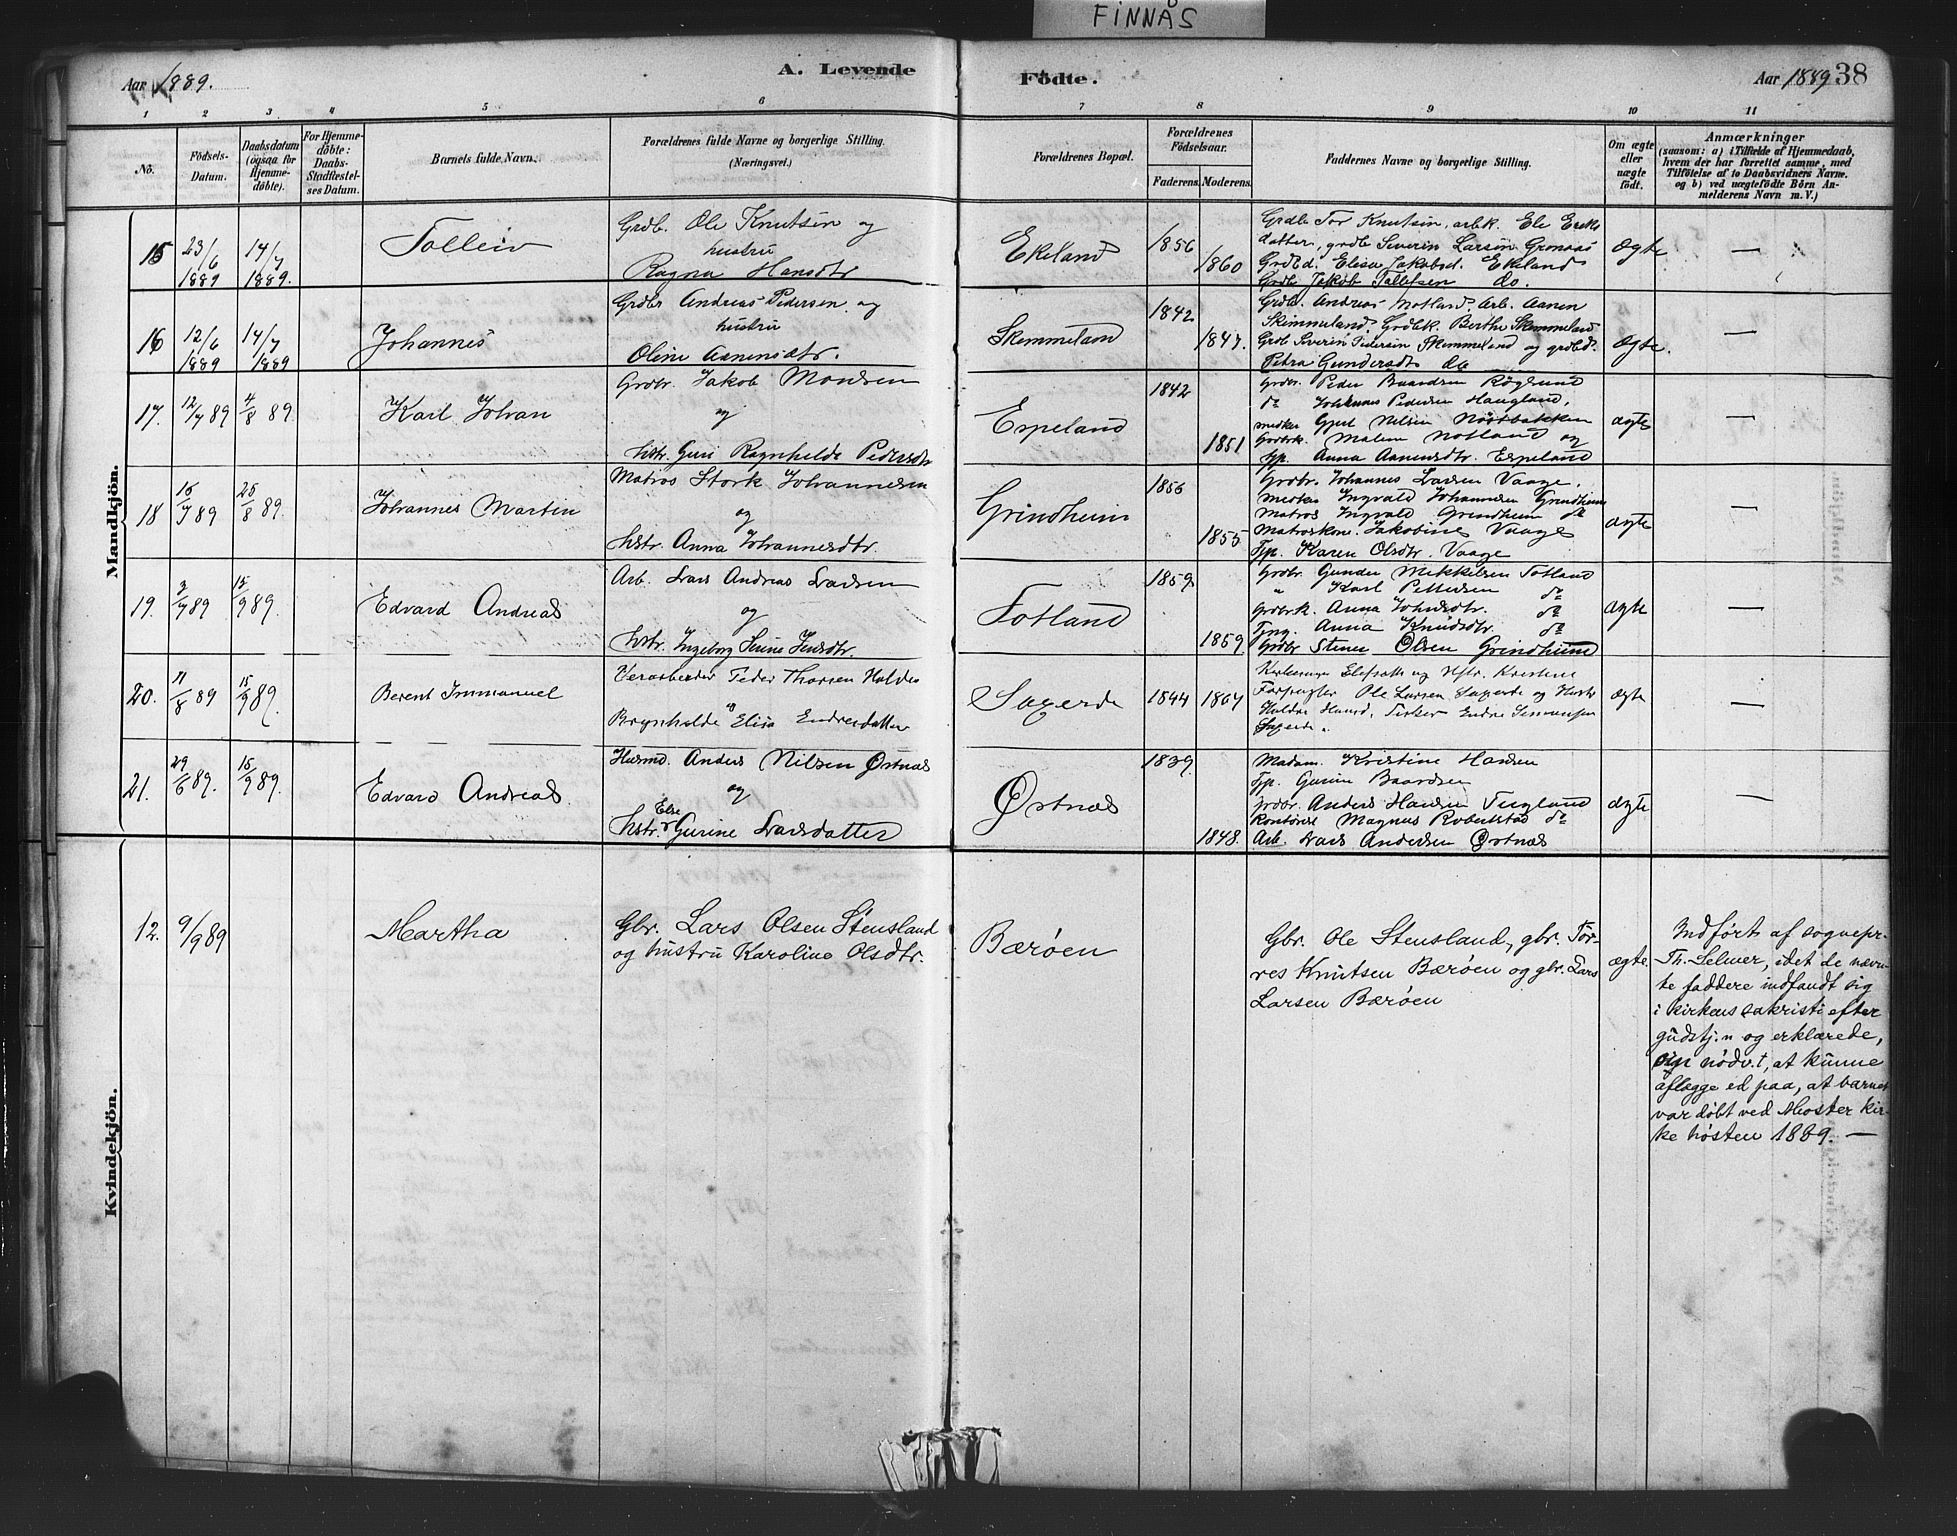 FINNÅS
Aar 1889.
A. Levende
Födte.
Aar 1889
38
1 2 3 4 5 6 7 8 9 10 11
No.
Födsels-
Datum.
Daabsdatum
(ogsaa for
Hjemme-
döbte).
For Hjemme-
döbte:
Daabs-
Stadfestel-
ses Datum.
Barnets fulde Navn.
Forældrenes fulde Navne og borgerlige Stilling.
(Næringsvei.)
Forældrenes Bopæl.
Forældrenes
Födselsaar.
Faderens. Moderens.
Faddernes Navne og borgerlige Stilling.
Om ægte
eller
uægte
født.
Anmærkninger
(saasom: a) i Tilfælde af Hjemmedaab,
hvem der har forrettet samme, med
Tilföielse af to Daabsvidners Navne.
og b) ved uægtefödte Börn An-
melderens Navn m. V.)
Mandkjön.
15 23/6 1889 14/7 1889.
Tolleiv
Grdb. Ole Knutsen og
hustru
Ragna Hansdtr
Ekeland
1856
1860
Grdb Tor Knutsen, arbk. Ele Eriks
datter, grdb Severin Larsen Gronaas
Grdbd. Elisa Jakobsd. Ekeland
Grdb Jakob Tollefsen do.
ægte —
16 12/6 1889 14/7 1889
Johannes
Grdbr Andreas Pedersen og
hustru
Oline Aanensdtr.
Skemmeland
1842
1847.
Grdb. Andreas Notland, Arb. Aanen
Skimmeland, Grdbk. Berthe Skemmeland
Grdb Severin Pedersen Skemmeland og grdbd.
Petra Gundersdt do
ægte. —
17. 12/7 89 4/8 89
Karl Johan
Grdbr. Jakob Monsen
og
hstr. Guri Ragnhilde Pedersdtr
Espeland
1842
1851
Grdbr. Peder Baardsen Røgsund
do Johannes Pedersen Haugland,
Gjert Nilsen Nøstbakken
Grdbrk. Malene Notland og
Tjp. Anna Aanensdtr. Espeland
ægte —
18 15/7 89 25/8 89.
Johannes Martin
Matros Stork Johannesen
og
hstr. Anna Johannesdtr.
Grindheim
1856
1855
Grdbr. Johannes Larsen Vaage,
Ingvald Johannesen Grindheim
Matros Ingvald Grindheim do
Matroskone Jakobine Vaage
Tjp. Karen Olsdtr. Vaage
ægte —
19. 3/7 89 15/9 89.
Edvard Andreas
Arb. Lars Andreas Larsen
og
hstr. Ingeborg Serine Jensdtr.
Totland
1859
1859.
Grdbr. Gunder Mikkelsen Totland
" Karl Pettersen do
Grdbrk. Anna Johnsdtr. do
Tjpg. Anna Knudsdtr. do
Grdbr Stener Olsen Grindheim
ægte —
20. 11/8 89 15/9 89.
Berent Immanuel
Veiarbeider Peder Thorsen Haldes
og
Brynhilde Elisa Endresdatter
Sagerde
1844 1864
Kirkesanger Elefsath og Hstr. Kristine
Forpagter Ole Larsen Sagerde og Hustr
Huldre Hansd. Fisker Endre Simonsen
Sagerde.
ægte —
21. 29/6 89. 15/9 89.
Edvard Andreas.
Husmd. Anders Nilsen Østnæs
og
Else
hstr. Gurine Larsdatter
Østnæs
1839
1848.
Madam. Kristine Hansen
Tjp. Gurine Baardsen
Grdbr. Anders Hansen Fugland
Kontorist Magnus Robertstad do
Arb. Lars Andersen Østnæs
ægte —
Kvindekjön.
12. 9/9 89
Martha
Gbr. Lars Olsen Stensland
og hustru Karoline Olsdtr.
Bærøen
Gbr. Ole Stensland, gbr. Tor-
res Knutsen Bærøen og gbr. Lars
Larsen Bærøen
ægte.
Indført af sognepr.
Th. Selmer, idet de nævn-
te faddere indfandt sig
i kirkens sakristi efter
gudstj.n og erklærede,
om nødv.t, at kunne
aflægge ed paa, at barnet
var døbt ved Moster kir-
ke høsten 1889. —